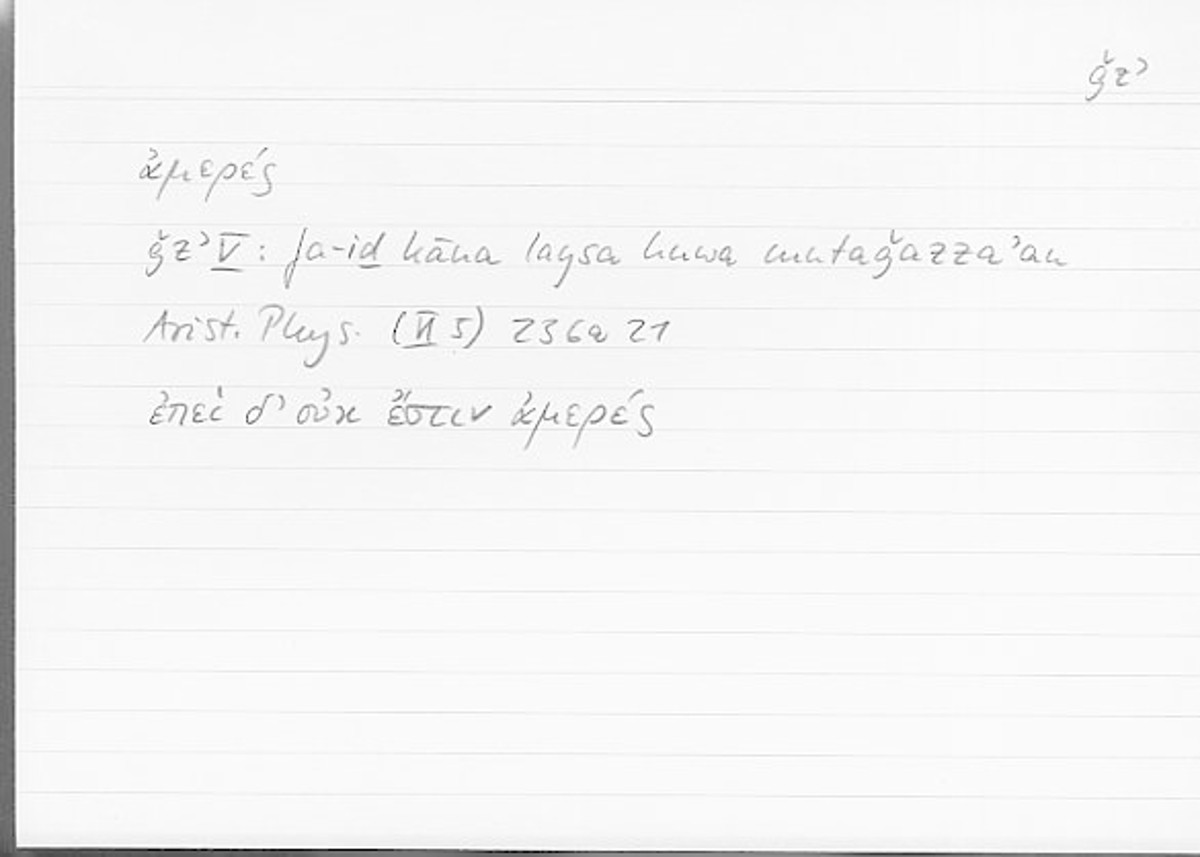 ǧzʾ
ἀμερές
ǧzʾ V: fa-iḏ kāna laysa huwa mutaǧazzaʾan
Arist. Phys. (VI 5) 236a 21
ἐπεὶ δ' οὐκ ἔστιν ἀμερές